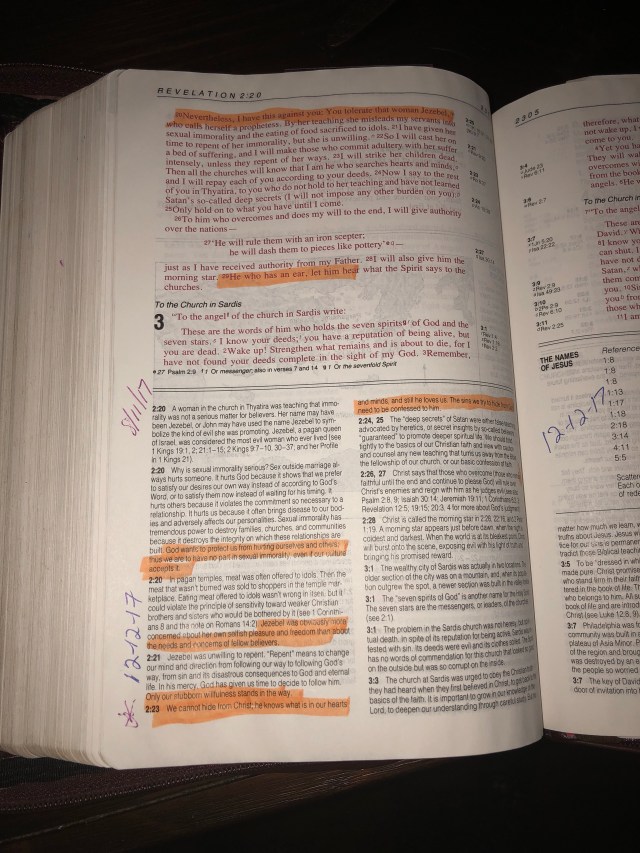 REVELATION 2:20
20Nevertheless, I have this against you: You tolerate that woman Jezebel,
who calls herself a prophetess. By her teaching she misleads my servants into
sexual immorality and the eating of food sacrificed to idols. 21I have given her
time to repent of her immorality, but she is unwilling. 22So I will cast her on
a bed of suffering, and I will make those who commit adultery with her suffer
intensely, unless they repent of her ways. 23I will strike her children dead.
Then all the churches will know that I am he who searches hearts and minds,
and I will repay each of you according to your deeds. 24Now I say to the rest
of you in Thyatira, to you who do not hold to her teaching and have not learned
Satan's so-called deep secrets (I will not impose any other burden on you):
25Only hold on to what you have until I come.
26To him who overcomes and does my will to the end, I will give authority
over the nations—
27'He will rule them with an iron scepter;
he will dash them to pieces like pottery'
just as I have received authority from my Father. 28I will also give him the
morning star. 29He who has an ear, let him hear what the Spirit says to the
churches.
To the Church in Sardis
3 "To the angel of the church in Sardis write:
These are the words of him who holds the seven spirits of God and the
seven stars. I know your deeds; you have a reputation of being alive, but
you are dead. 2Wake up! Strengthen what remains and is about to die, for I
have not found your deeds complete in the sight of my God. 3Remember,
27 Psalm 2:9 f 1 Or messenger; also in verses 7 and 14 g 1 Or the sevenfold Spirit
8/11/17
2:20 A woman in the church in Thyatira was teaching that immo-
rality was not a serious matter for believers. Her name may have
been Jezebel, or John may have used the name Jezebel to sym-
bolize the kind of evil she was promoting. Jezebel, a pagan queen
of Israel, was considered the most evil woman who ever lived (see
1 Kings 19:1, 2; 21:1-15; 2 Kings 9:7-10, 30-37; and her Profile
in 1 Kings 21).
2:20 Why is sexual immorality serious? Sex outside marriage al-
ways hurts someone. It hurts God because it shows that we prefer
to satisfy our desires our own way instead of according to God's
Word, or to satisfy them now instead of waiting for his timing. It
hurts others because it violates the commitment so necessary to a
relationship. It hurts us because it often brings disease to our bod-
ies and adversely affects our personalities. Sexual immorality has
tremendous power to destroy families, churches, and communities
because it destroys the integrity on which these relationships are
built. God wants to protect us from hurting ourselves and others;
thus we are to have no part in sexual immorality, even if our culture
accepts it.
2:20 In pagan temples, meat was often offered to idols. Then the
meat that wasn't burned was sold to shoppers in the temple mar-
ketplace. Eating meat offered to idols wasn't wrong in itself, but it
could violate the principle of sensitivity toward weaker Christian
brothers and sisters who would be bothered by it (see 1 Corinthi-
ans 8 and the note on Romans 14:2). Jezebel was obviously more
concerned about her own selfish pleasure and freedom than about
the needs and concerns of fellow believers.
12-12-17
2:21 Jezebel was unwilling to repent. "Repent" means to change
our mind and direction from following our way to following God's
way, from sin and its disastrous consequences to God and eternal
life. In his mercy, God has given us time to decide to follow him.
Only our stubborn willfulness stands in the way.
2:23 We cannot hide from Christ; he knows what is in our hearts
and minds, and still he loves us. The sins we try to hide from
need to be confessed to him.
2:24, 25 The "deep secrets" of Satan were either false
advocated by heretics, or secret insights by so-called believers
"guaranteed" to promote deeper spiritual life. We should hold
tightly to the basics of our Christian faith and view with
and counsel any new teaching that turns us away from the
the fellowship of our church, or our basic confession of
2:26, 27 Christ says that those who overcome (those who
faithful until the end and continue to please God) will rule over
Christ's enemies and reign with him as he judges evil
Psalm 2:8, 9; Isaiah 30:14; Jeremiah 19:11; 1 Corinthians
Revelation 12:5; 19:15; 20:3, 4 for more about God's
2:28 Christ is called the morning star in 2:28, 22:16, and 2 Peter
1:19. A morning star appears just before dawn, when the night
coldest and darkest. When the world is at its bleakest point, Christ
will burst onto the scene, exposing evil with his light of truth and
bringing his promised reward.
3:1 The wealthy city of Sardis was actually in two locations. The
older section of the city was on a mountain, and, when its popula-
tion outgrew the spot, a newer section was built in the
3:1 The "seven spirits of God" is another name for the Holy
The seven stars are the messengers, or leaders, of the churches
(see 2:1).
3:1 The problem in the Sardis church was not heresy, but spiri-
tual death. In spite of its reputation for being active, Sardis
fested with sin. Its deeds were evil and its clothes soiled. The
has no words of commendation for this church that looked so
on the outside but was so corrupt on the inside.
3:3 The church at Sardis was urged to obey the Christian
they had heard when they first believed in Christ, to get
basics of the faith. It is important to grow in our knowledge of
Lord, to deepen our understanding through careful study. But
2305
therefore, what
not wake up, I
come to you.
Yet you ha
They will
from the book
angels.
To the Church in
7"To the angel
These are
David.
I know yo
can shut. I
have not
Satan,
them com
you.
from
those wh
I am
THE NAMES
OF JESUS
Reference
1:8
1:8
1:13
1:17
1:18
2:18
3:14
4:11
5:5
12-12-17
Scatter
Each o
of rede
matter how much we learn,
truths about Jesus. Jesus
tice for our sins is permanent
tradict those Biblical teachin
3:5 To be "dressed in whi
made pure. Christ promise
who stand firm in their fait
tered in the book of life. Th
who belongs to him. All su
book of life and are introd
Christ (see Luke 12:8, 9).
3:7 Philadelphia was fo
community was built in
plateau of Asia Minor. P
of the region and broug
was destroyed by an e
the people so worried
3:7 The key of David
door of invitation into